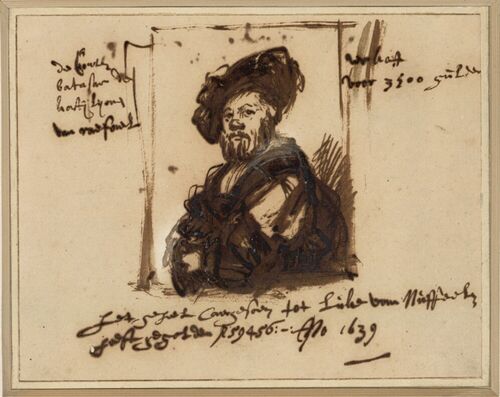 de Conte
batasar de
kastijlyone
van rafael
verkoft
voor 3500 gulden
het geheel caergesoen tot Luke van Nuffeelen
heeft gegolden f 59456:-: Ao 1639